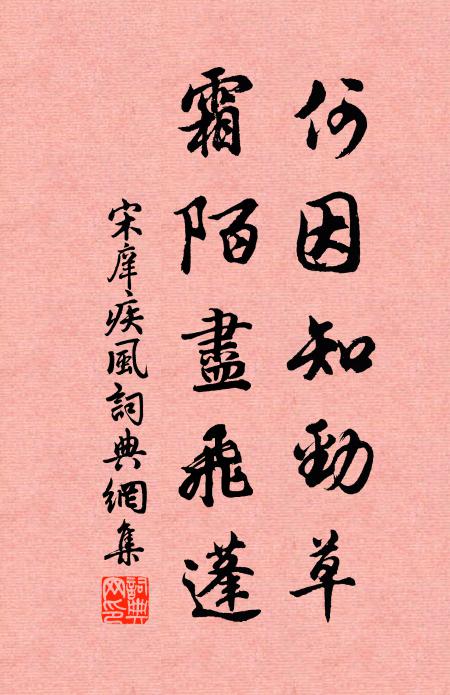 何因知勁草
霜陌盡飛蓬
宋庠疾風詞典網集
詞典網